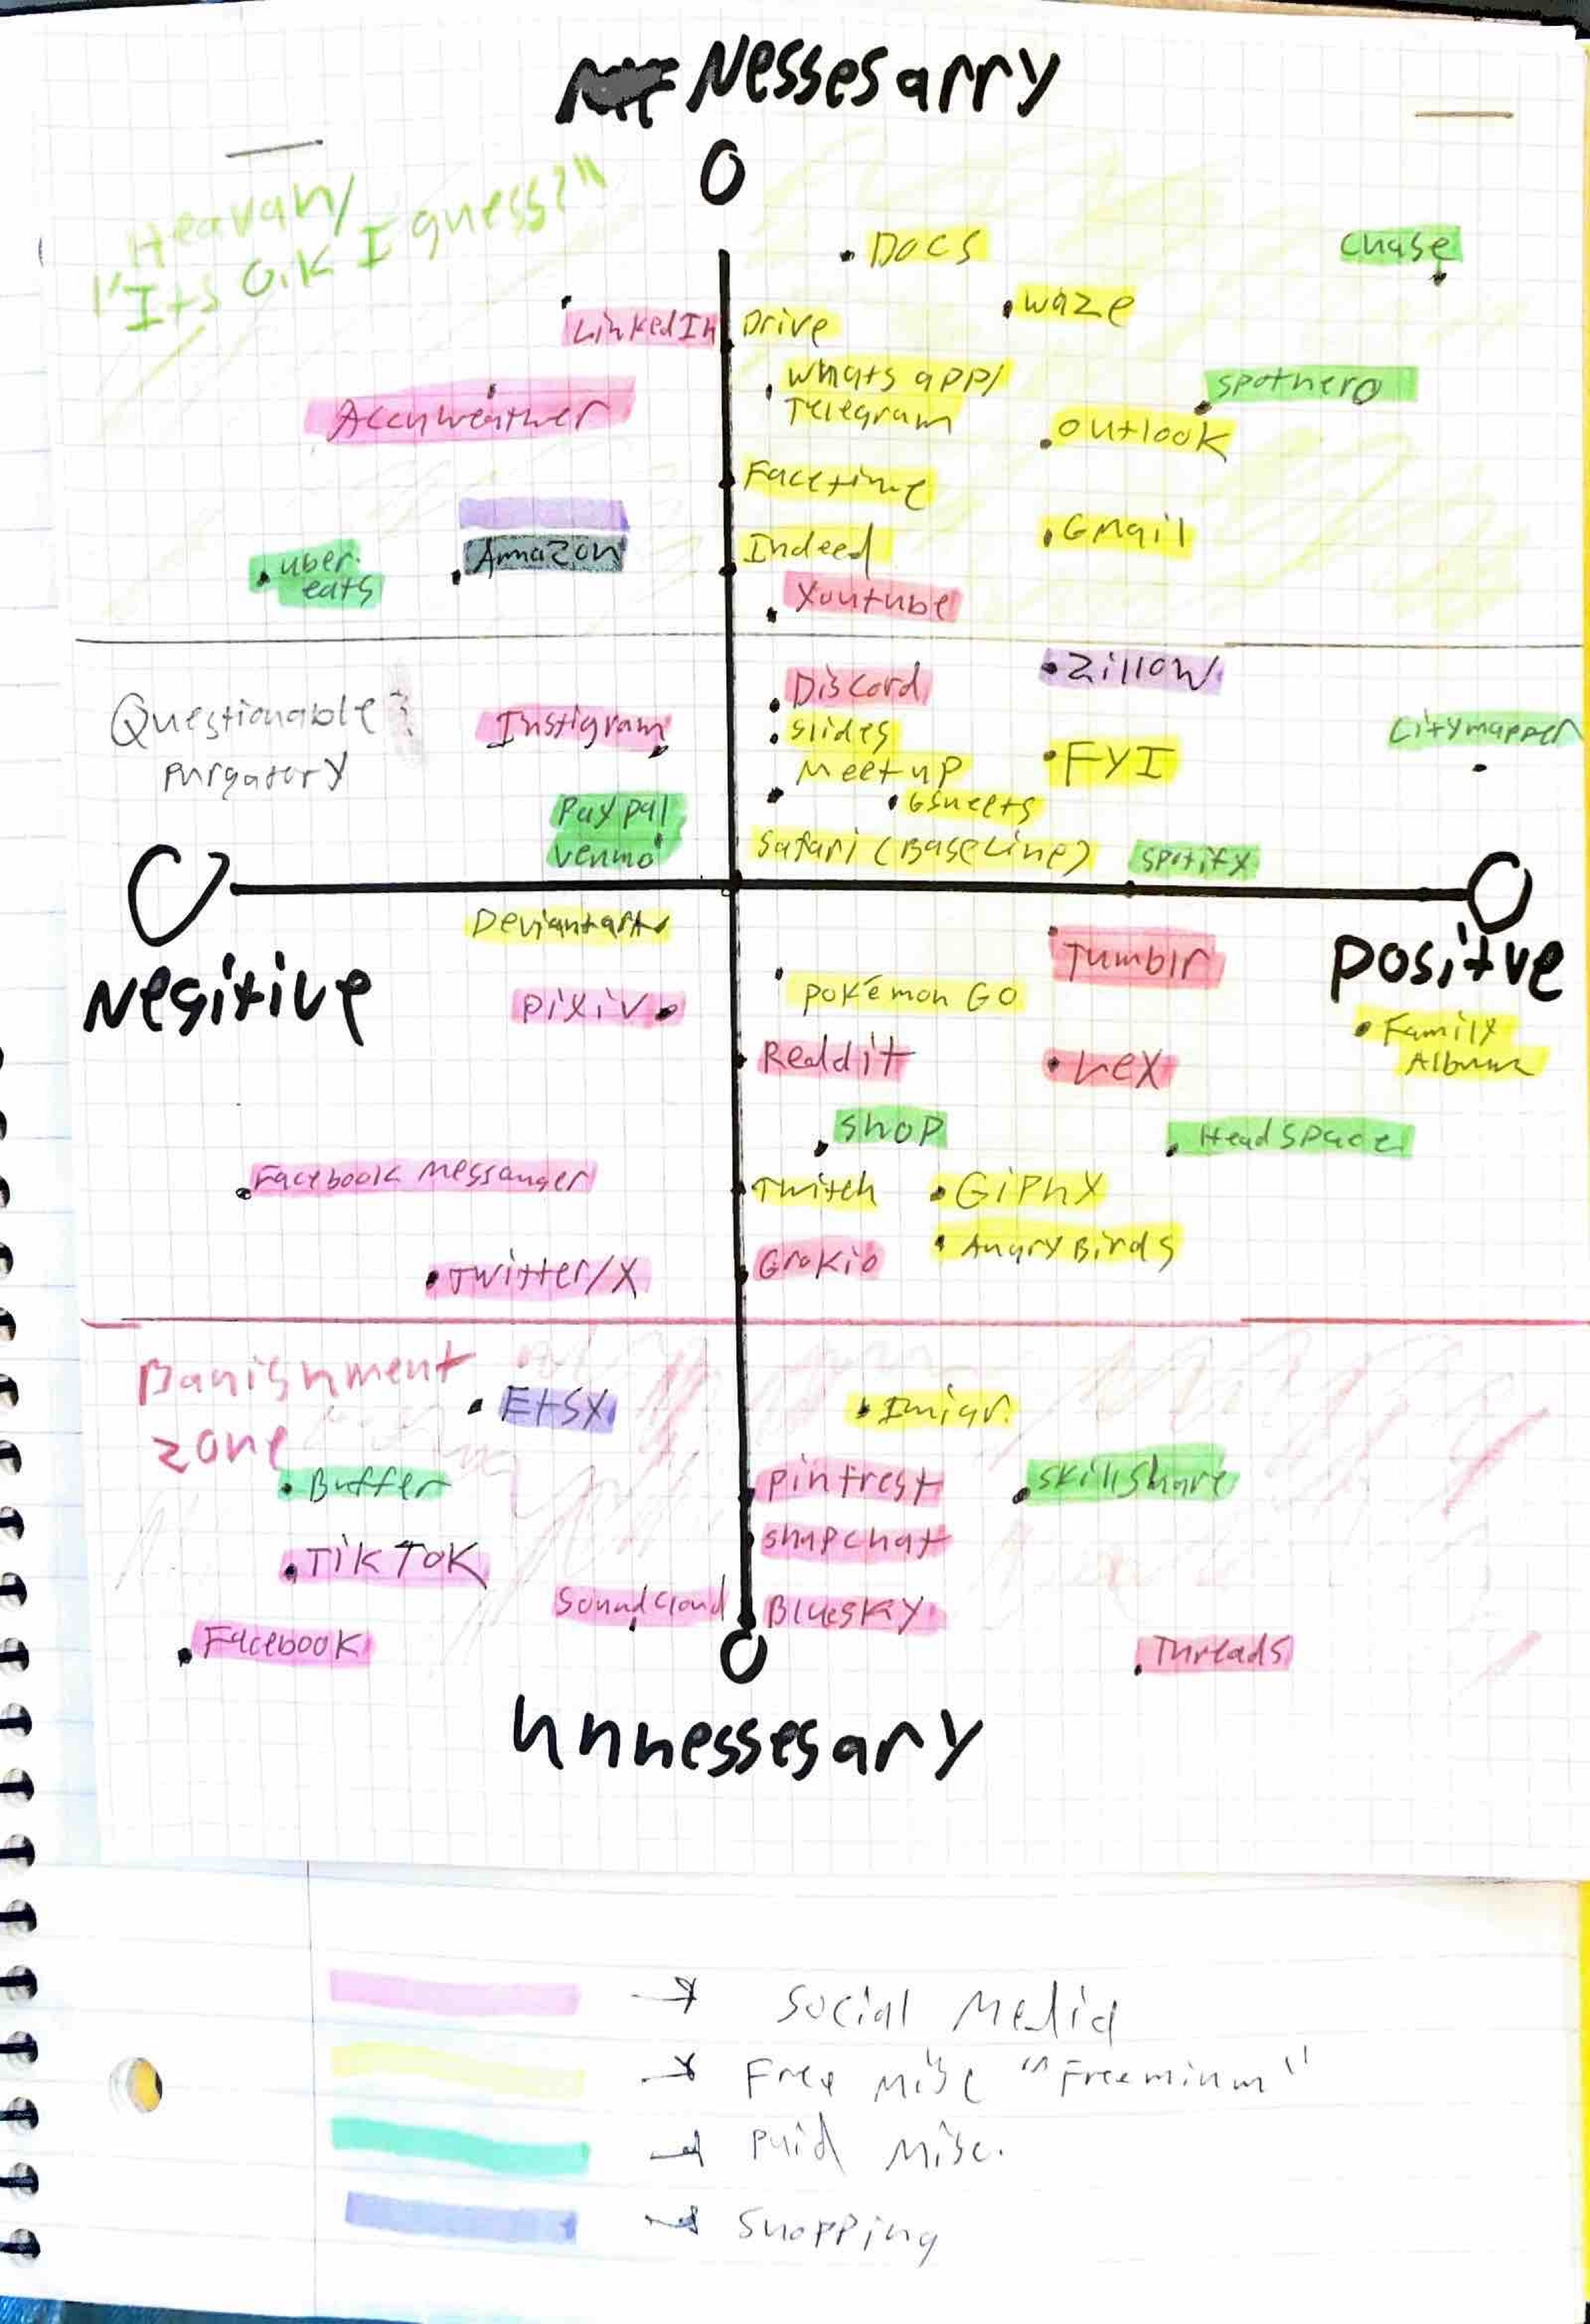 Nessesarry
Heavan/
"Its O.K I guess?"
Docs
Chase
Waze
LinkedIn
Drive
Whats app/
Telegram
spothero
Accuweather
Outlook
Facetime
Gmail
Amazon
Indeed
uber
eats
Youtube
Zillow
Discord
Questionable
purgatory
Instigram
slides
Citymapper
FYI
Meetup
Gsheets
Paypal
venmo
Safari (Baseline)
spotify
Deviantart
Tumblr
Negitive
Positve
pixiv
pokémon GO
Family
Album
Reddit
Lex
shop
Headspace
Facebook Messanger
Twitch
Giphy
Angry Birds
Twitter/X
Grokio
Banishment
zone
Etsy
Buffer
pintrest
skillshare
TikTok
snapchat
Soundcloud
Bluesky
Facebook
Threads
Unnessesary
Social Media
Free misc "Freemium"
Paid Misc.
Shopping